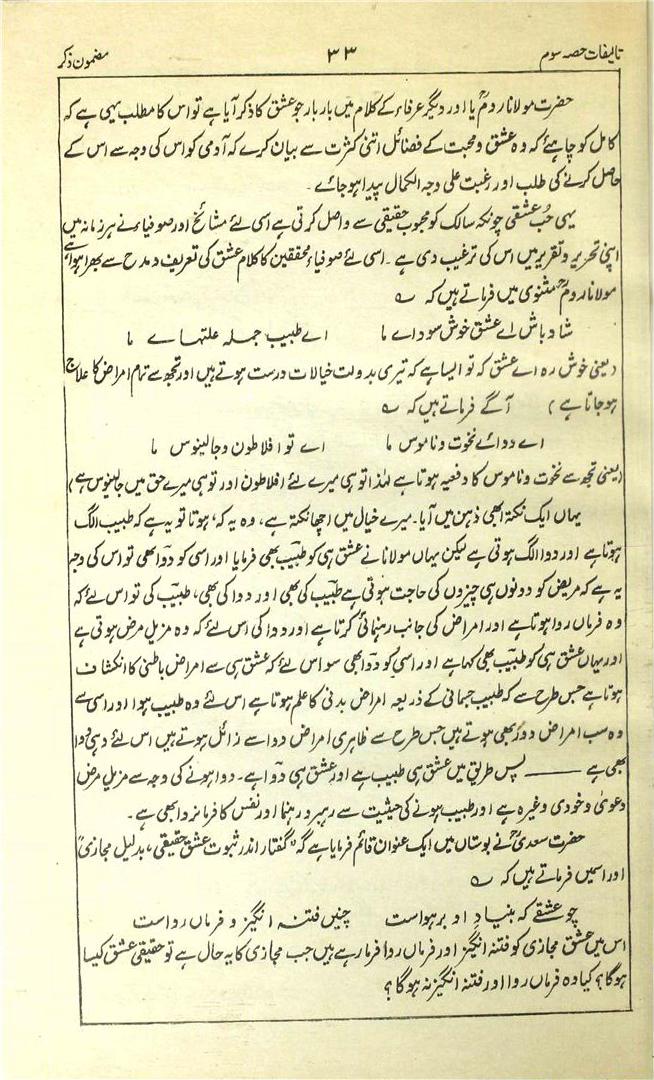 تالیفات حصہ سوم ۳۳ مضمون ذکر
حضرت مولانا رومؒ یا اور دیگر عرفاء کے کلام میں بار بار جو عشق کا ذکر آیا ہے تو اس کا مطلب یہی ہے کہ
کامل کو چاہیئے کہ وہ عشق و محبت کے فضائل اتنی کثرت سے بیان کرے کہ آدمی کو اس کی وجہ سے اس کے
حاصل کرنے کی طلب اور رغبت علی وجہ الکمال پیدا ہو جائے۔
یہی حُب عشقی چونکہ سالک کو محبوب حقیقی سے واصل کرتی ہے اسی لئے مشائخ اور صوفیاء نے ہر زمانہ میں
اپنی تحریر و تقریر میں اس کی ترغیب دی ہے۔ اسی لئے صوفیاء محققین کا کلام عشق کی تعریف و مدح سے بھرا ہوا ہے
مولانا رومؒ مثنوی میں فرماتے ہیں کہ ؎
شاد باش اے عشق خوش سودائے ما اے طبیب جملہ علتہائے ما
(یعنی خوش رہ اے عشق کہ تو ایسا ہے کہ تیری بدولت خیالات درست ہوتے ہیں اور تجھ سے تمام امراض کا علاج
ہو جاتا ہے) آگے فرماتے ہیں کہ ؎
اے دوائے نخوت و ناموس ما اے تو افلاطون و جالینوس ما
(یعنی تجھ سے نخوت و ناموس کا دفعیہ ہوتا ہے لہٰذا تو ہی میرے لئے افلاطون اور تو ہی میرے حق میں جالینوس ہے)
یہاں ایک نکتہ ابھی ذہن میں آیا۔ میرے خیال میں اچھا نکتہ ہے، وہ یہ کہ، ہوتا تو یہ ہے کہ طبیب الگ
ہوتا ہے اور دوا الگ ہوتی ہے لیکن یہاں مولانا نے عشق ہی کو طبیب بھی فرمایا اور اسی کو دوا بھی تو اس کی وجہ
یہ ہے کہ مریض کو دونوں ہی چیزوں کی حاجت ہوتی ہے طبیب کی بھی اور دوا کی بھی، طبیب کی تو اس لئے کہ
وہ فرماں روا ہوتا ہے اور امراض کی جانب رہنمائی کرتا ہے اور دوا کی اس لئے کہ وہ مزیل مرض ہوتی ہے
اور یہاں عشق ہی کو طبیب بھی کہا ہے اور اسی کو دوا بھی سو اس لئے کہ عشق ہی سے امراض باطنی کا انکشاف
ہوتا ہے جس طرح سے کہ طبیب جسمانی کے ذریعہ امراض بدنی کا علم ہوتا ہے اس لئے وہ طبیب ہوا اور اسی سے
وہ سب امراض دور بھی ہوتے ہیں جس طرح سے ظاہری امراض دوا سے زائل ہوتے ہیں اس لئے وہی دوا
بھی ہے ——— پس طریق میں عشق ہی طبیب ہے اور عشق ہی دوا ہے۔ دوا ہونے کی وجہ سے مزیل مرض
دعویٰ و خودی وغیرہ ہے اور طبیب ہونے کی حیثیت سے رہبر و رہنما اور نفس کا فرمانروا بھی ہے۔
حضرت سعدیؒ نے بوستاں میں ایک عنوان قائم فرمایا ہے کہ "گفتار اندر ثبوت عشق حقیقی، بدلیل مجازی"
اور اسمیں فرماتے ہیں کہ ؎
چو عشقے کہ بنیاد او بر ہواست چنیں فتنہ انگیز و فرماں رواست
اس میں عشق مجازی کو فتنہ انگیز اور فرماں روا فرما رہے ہیں جب مجازی کا یہ حال ہے تو حقیقی عشق کیسا
ہوگا؟ کیا وہ فرماں روا اور فتنہ انگیز نہ ہوگا؟